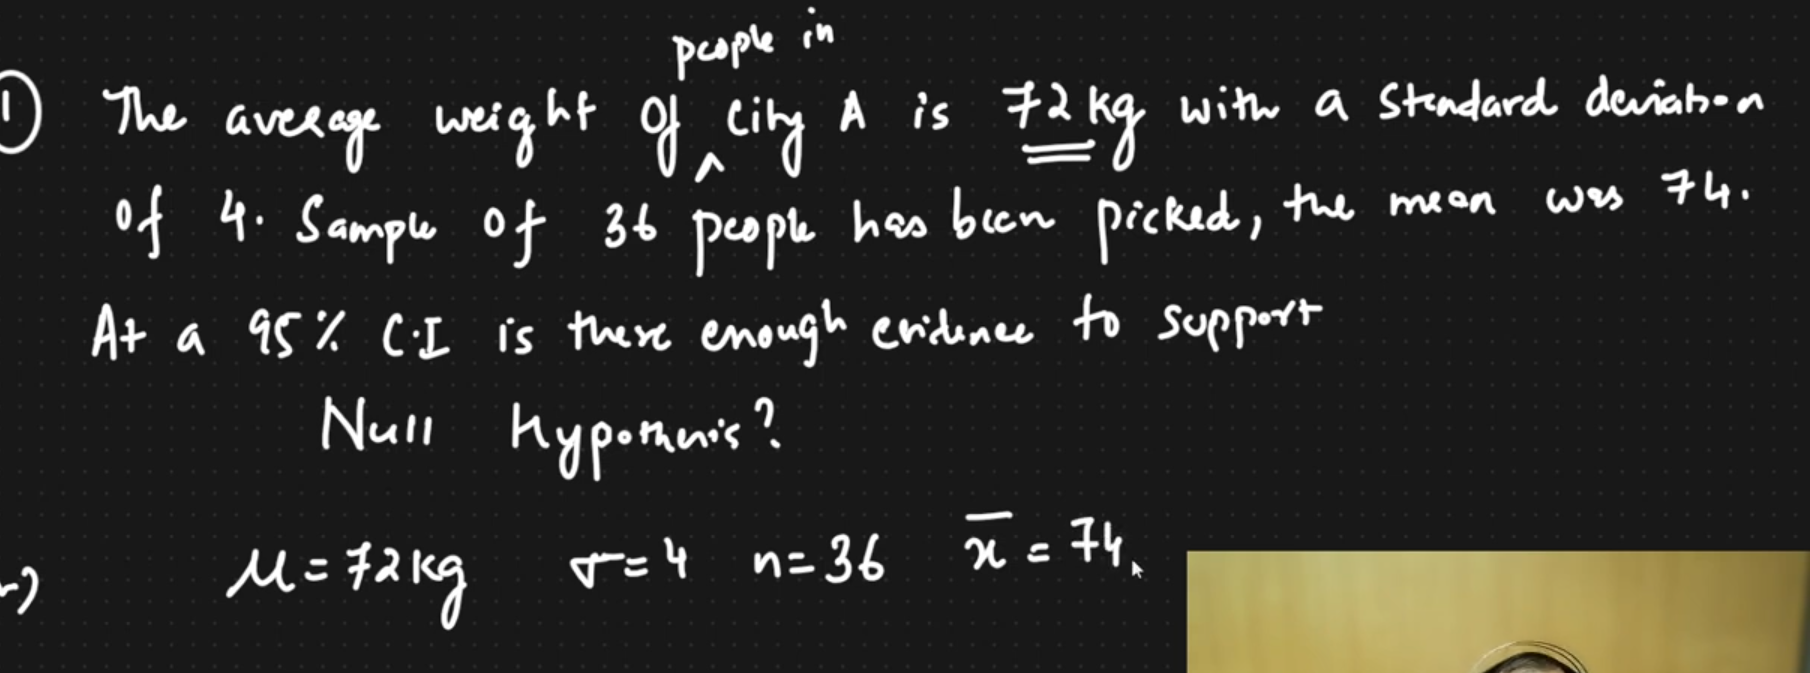 people in
① The average weight of ^ City A is 72 kg with a standard deviation
of 4. Sample of 36 people has been picked, the mean was 74.
At a 95% C.I is there enough evidence to support
Null Hypothesis?
μ = 72 kg σ = 4 n = 36 x̅ = 74